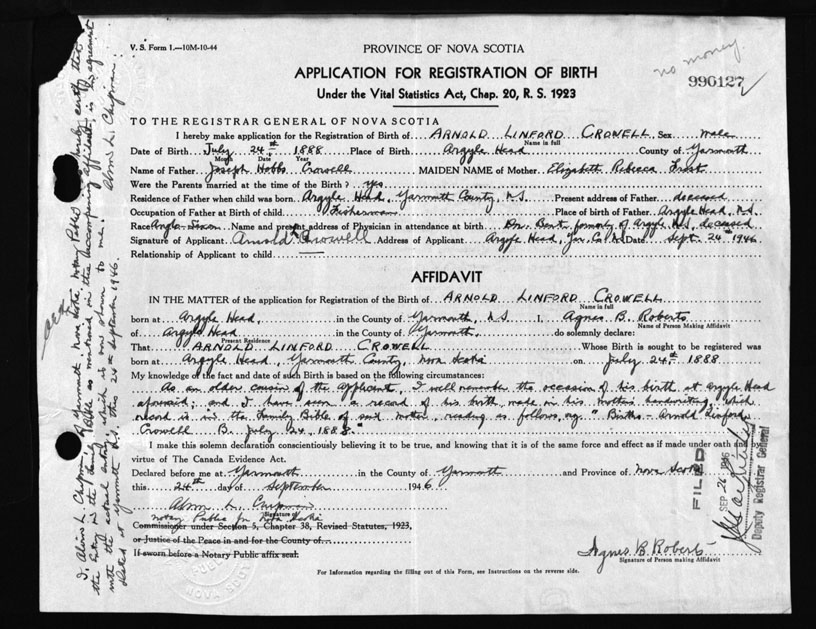 V. S. Form 1.—10M-10-44
PROVINCE OF NOVA SCOTIA
no money.
990127
APPLICATION FOR REGISTRATION OF BIRTH
Under the Vital Statistics Act, Chap. 20, R. S. 1923
TO THE REGISTRAR GENERAL OF NOVA SCOTIA
I hereby make application for the Registration of Birth of ARNOLD LINFORD CROWELL Sex male
Name in full
Date of Birth July 24th 1888 Place of Birth Argyle Head County of Yarmouth
Month Date Year
Name of Father Joseph Hobbs Crowell MAIDEN NAME of Mother Elizabeth Rebecca Frost
Were the Parents married at the time of the Birth? yes
Residence of Father when child was born Argyle Head, Yarmouth County, N.S. Present address of Father deceased
Occupation of Father at Birth of child Fisherman Place of birth of Father Argyle Head, N.S.
Race Anglo-Saxon Name and present address of Physician in attendance at birth Dr. Bent, formerly of Argyle N.S., deceased
Signature of Applicant Arnold L Crowell Address of Applicant Argyle Head, Yar. Co. N.S. Date Sept. 24th 1946
Relationship of Applicant to child —
AFFIDAVIT
IN THE MATTER of the application for Registration of the Birth of ARNOLD LINFORD CROWELL
Name in full
born at Argyle Head, in the County of Yarmouth, N.S. I, Agnes B. Roberts
Name of Person Making Affidavit
of Argyle Head in the County of Yarmouth, do solemnly declare:
Present Residence
That ARNOLD LINFORD CROWELL Whose Birth is sought to be registered was
born at Argyle Head, Yarmouth County, Nova Scotia on July 24th 1888
My knowledge of the fact and date of such Birth is based on the following circumstances:
As an older cousin of the applicant, I well remember the occasion of his birth at Argyle Head
aforesaid; and I have seen a record of his birth, made in his mother's handwriting, which
record is in the Family Bible of said mother, reading as follows, "Births - Arnold Linford
Crowell B. July 24, 1888."
I make this solemn declaration conscientiously believing it to be true, and knowing that it is of the same force and effect as if made under oath and
virtue of The Canada Evidence Act.
Declared before me at Yarmouth in the County of Yarmouth and Province of Nova Scotia
this 24th day of September 1946
Alvin L. Chipman
Signature
Notary Public for Nova Scotia
Commissioner under Section 5, Chapter 38, Revised Statutes, 1923,
or Justice of the Peace in and for the County of
If sworn before a Notary Public affix seal.
Agnes B. Roberts
Signature of Person making Affidavit
For Information regarding the filling out of this Form, see Instructions on the reverse side.
FILED
SEP 26 1946
Deputy Registrar General
I, Alvin L. Chipman of Yarmouth, Nova Scotia, Notary Public, hereby certify that
the entry in the Family Bible as mentioned in the accompanying affidavit, is in agreement
with the actual entry which is now shown to me.
Dated at Yarmouth N.S. this 24th September 1946. Alvin L. Chipman.
NOVA SCOTIA